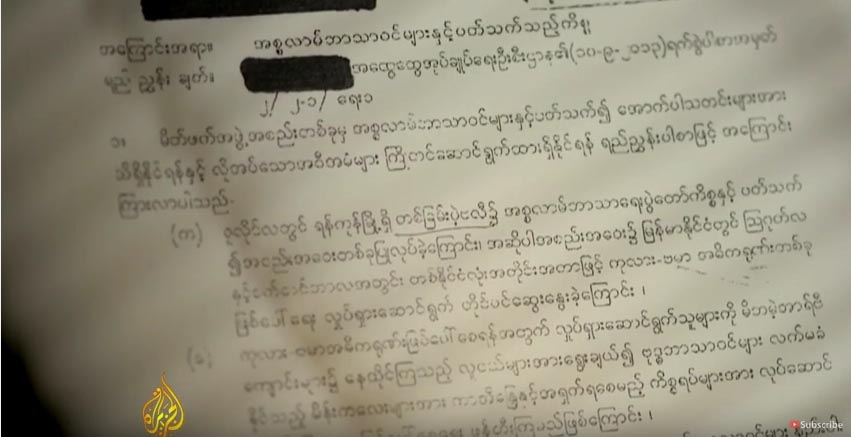 အကြောင်းအရာ။ အစ္စလာမ်ဘာသာဝင်များနှင့်ပတ်သက်သည့်ကိစ္စ
ရည် ညွှန်း ချက်။ အထွေထွေအုပ်ချုပ်ရေးဦးစီးဌာန၏(၁၀-၉-၂၀၁၃)ရက်စွဲပါစာအမှတ်
၂/ ၂-၁/ ရေး၁
၁။ မိတ်ဖက်အဖွဲ့အစည်းတစ်ခုမှ အစ္စလာမ်ဘာသာဝင်များနှင့်ပတ်သက်၍ အောက်ပါသတင်းများအား
သိရှိနိုင်ရန်နှင့် လိုအပ်သောအစီအမံများ ကြိုတင်ဆောင်ရွက်ထားရှိနိုင်ရန် ရည်ညွှန်းပါစာဖြင့် အကြောင်း
ကြားလာပါသည်-
(က) ဇူလိုင်လတွင် ရန်ကုန်မြို့ရှိ တစ်ခြမ်းပဲ့ဗလီ၌ အစ္စလာမ်ဘာသာရေးပွဲတော်ကိစ္စနှင့် ပတ်သက်
၍အစည်းအဝေးတစ်ခုပြုလုပ်ခဲ့ကြောင်း၊ အဆိုပါအစည်းအဝေး၌ မြန်မာနိုင်ငံတွင် ဩဂုတ်လ
နှင့်စက်တင်ဘာလအတွင်း တစ်နိုင်ငံလုံးအတိုင်းအတာဖြင့် ကုလား-ဗမာ အဓိကရုဏ်းတစ်ခု
ဖြစ်ပေါ်ရေး လှုပ်ရှားဆောင်ရွက် တိုင်ပင်ဆွေးနွေးခဲ့ကြောင်း ၊
(ခ) ကုလား-ဗမာအဓိကရုဏ်းဖြစ်ပေါ်စေရန်အတွက် လှုပ်ရှားဆောင်ရွက်သူများကို မိဘမဲ့အာရ်ဗီ
ကျောင်းများ၌ နေထိုင်ကြသည့် လူငယ်များအားရွေးချယ်၍ ဗုဒ္ဓဘာသာဝင်များ လက်မခံ
နိုင်သည့် မိန်းကလေးများအား ကာယိန္ဒြေနှင့်အရှက်ရစေမည့် ကိစ္စရပ်များအား လုပ်ဆောင်
ဖြစ်ကြောင်း ၊
الجزيرة
Subscribe